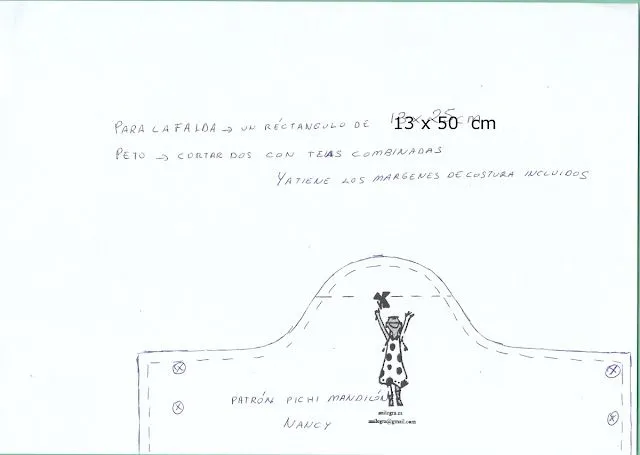 PARA LA FALDA → UN RECTANGULO DE 13 x 25 cm
13 x 50 cm
PETO → CORTAR DOS CON TELAS COMBINADAS
YA TIENE LOS MARGENES DE COSTURA INCLUIDOS
PATRÓN PICHI MANDILÓN
NANCY
anilegra.es
anilegra@gmail.com